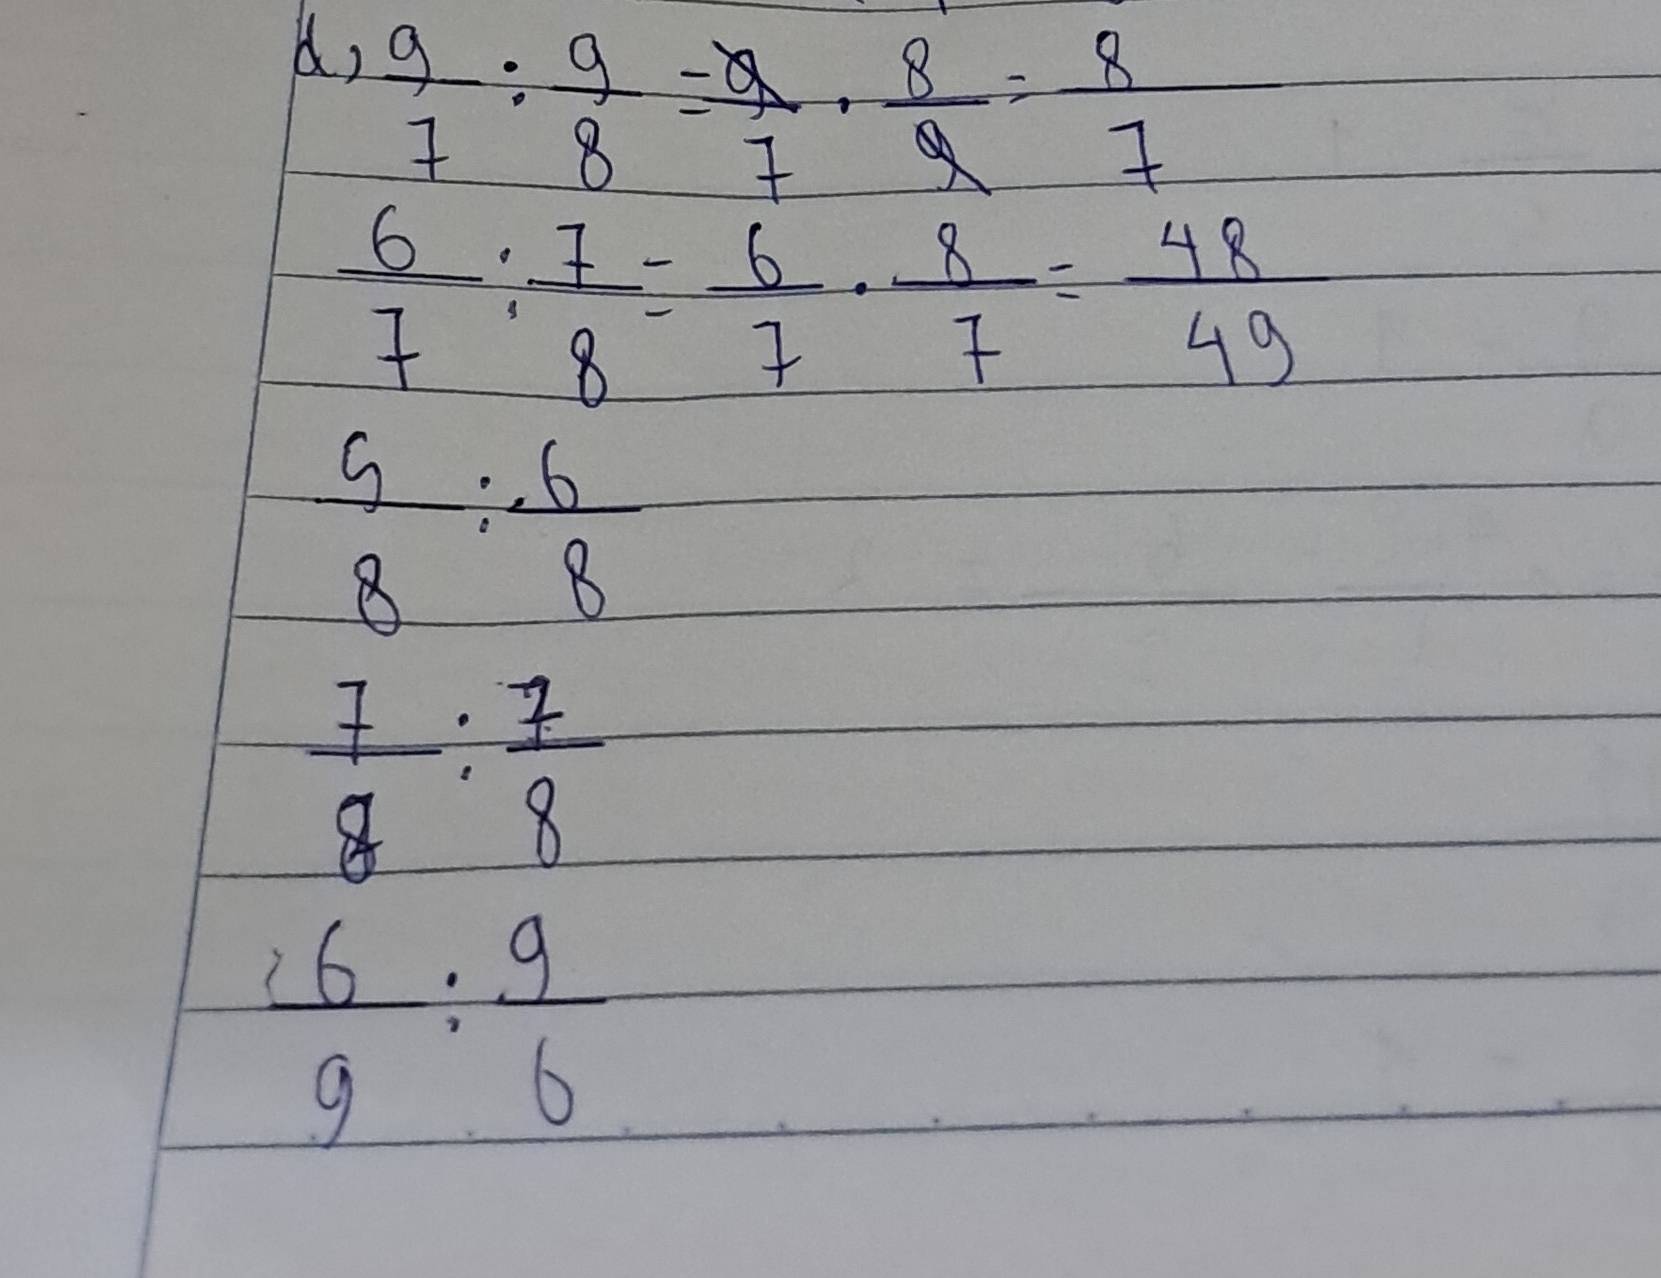 d, 9/7 : 9/8 = 9/7 . 8/9 = 8/7
6/7 : 7/8 = 6/7 . 8/7 = 48/49
5/8 : 6/8
7/8 : 7/8
6/9 : 9/6